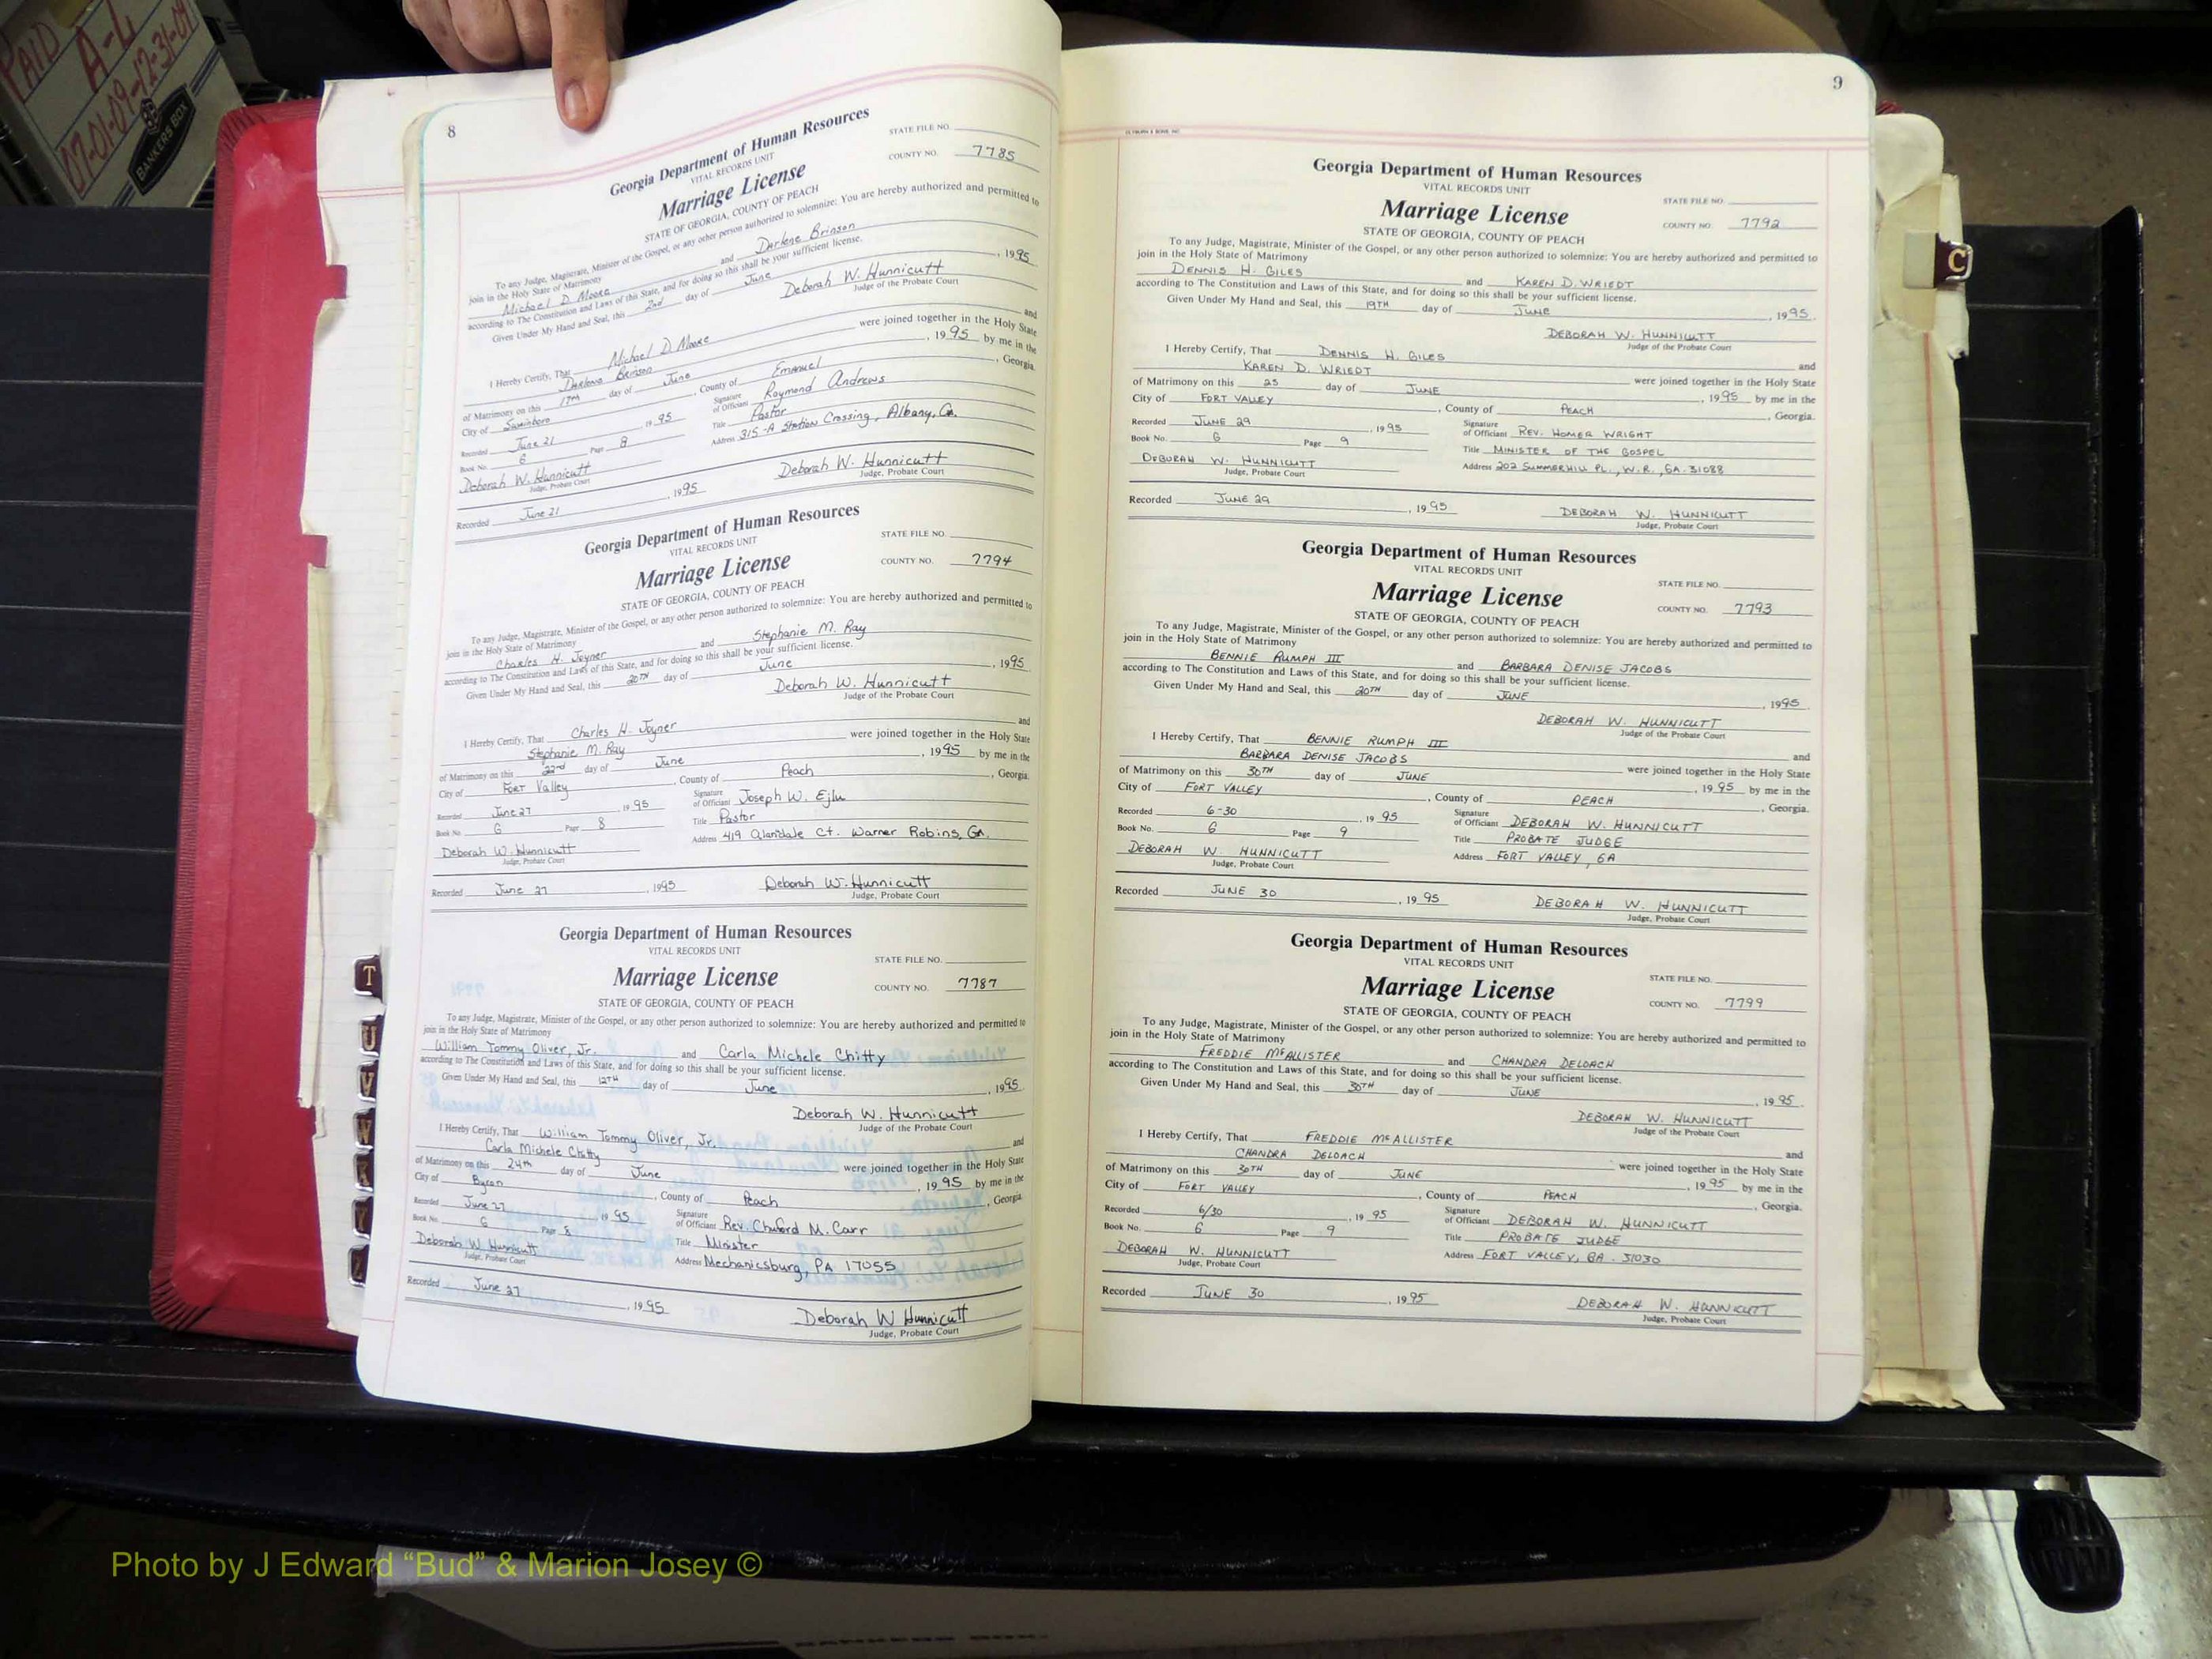 PAID
A-L
07-01-09-12-31-09
BANKERS BOX
8
Georgia Department of Human Resources
VITAL RECORDS UNIT
STATE FILE NO.
Marriage License
COUNTY NO. 7785
STATE OF GEORGIA, COUNTY OF PEACH
To any Judge, Magistrate, Minister of the Gospel, or any other person authorized to solemnize: You are hereby authorized and permitted to
join in the Holy State of Matrimony
Michael D. Moore and Darlene Brinson
according to The Constitution and Laws of this State, and for doing so this shall be your sufficient license.
Given Under My Hand and Seal, this 2nd day of June, 1995
Deborah W. Hunnicutt
Judge of the Probate Court
I Hereby Certify, That Michael D. Moore and
Darlene Brinson were joined together in the Holy State
of Matrimony on this 17th day of June, 1995 by me in the
City of Swainsboro, County of Emanuel, Georgia.
Recorded June 21 1995 Signature of Officiant Raymond Andrews
Book No. 6 Page 8 Title Pastor
Deborah W. Hunnicutt Address 315-A Station Crossing, Albany, Ga.
Judge, Probate Court
Recorded June 21, 1995 Deborah W. Hunnicutt
Judge, Probate Court
Georgia Department of Human Resources
VITAL RECORDS UNIT
STATE FILE NO.
Marriage License
COUNTY NO. 7794
STATE OF GEORGIA, COUNTY OF PEACH
To any Judge, Magistrate, Minister of the Gospel, or any other person authorized to solemnize: You are hereby authorized and permitted to
join in the Holy State of Matrimony
Charles H. Joyner and Stephanie M. Ray
according to The Constitution and Laws of this State, and for doing so this shall be your sufficient license.
Given Under My Hand and Seal, this 20TH day of June, 1995
Deborah W. Hunnicutt
Judge of the Probate Court
I Hereby Certify, That Charles H. Joyner and
Stephanie M. Ray were joined together in the Holy State
of Matrimony on this 22nd day of June, 1995 by me in the
City of Fort Valley, County of Peach, Georgia.
Recorded June 27, 1995 Signature of Officiant Joseph W.
Book No. 6 Page 8 Title Pastor
Deborah W. Hunnicutt Address 419 Ct. Warner Robins, Ga.
Judge, Probate Court
Recorded June 27, 1995 Deborah W. Hunnicutt
Judge, Probate Court
Georgia Department of Human Resources
VITAL RECORDS UNIT
STATE FILE NO.
Marriage License
COUNTY NO. 7787
STATE OF GEORGIA, COUNTY OF PEACH
To any Judge, Magistrate, Minister of the Gospel, or any other person authorized to solemnize: You are hereby authorized and permitted to
join in the Holy State of Matrimony
William Tommy Oliver, Jr. and Carla Michele Chitty
according to The Constitution and Laws of this State, and for doing so this shall be your sufficient license.
Given Under My Hand and Seal, this 12TH day of June, 1995
Deborah W. Hunnicutt
Judge of the Probate Court
I Hereby Certify, That William Tommy Oliver, Jr. and
Carla Michele Chitty were joined together in the Holy State
of Matrimony on this 24th day of June, 1995 by me in the
City of Byron, County of Peach, Georgia.
Recorded June 27 1995 Signature of Officiant Rev. M. Carr
Book No. 6 Page 8 Title Minister
Deborah W. Hunnicutt Address Mechanicsburg, PA 17055
Judge, Probate Court
Recorded June 27, 1995 Deborah W Hunnicutt
Judge, Probate Court
T
U
V
W
X
Y
Z
9
Georgia Department of Human Resources
VITAL RECORDS UNIT
STATE FILE NO.
Marriage License
COUNTY NO. 7792
STATE OF GEORGIA, COUNTY OF PEACH
To any Judge, Magistrate, Minister of the Gospel, or any other person authorized to solemnize: You are hereby authorized and permitted to
join in the Holy State of Matrimony
DENNIS H. GILES and KAREN D. WRIEDT
according to The Constitution and Laws of this State, and for doing so this shall be your sufficient license.
Given Under My Hand and Seal, this 19TH day of JUNE, 1995.
DEBORAH W. HUNNICUTT
Judge of the Probate Court
I Hereby Certify, That DENNIS H. GILES and
KAREN D. WRIEDT were joined together in the Holy State
of Matrimony on this 25 day of JUNE, 1995 by me in the
City of FORT VALLEY, County of PEACH, Georgia.
Recorded JUNE 29, 1995 Signature of Officiant REV. HOMER WRIGHT
Book No. 6 Page 9 Title MINISTER OF THE GOSPEL
DEBORAH W. HUNNICUTT Address 202 SUMMERHILL PL., W.R., GA. 31088
Judge, Probate Court
Recorded JUNE 29, 1995 DEBORAH W. HUNNICUTT
Judge, Probate Court
Georgia Department of Human Resources
VITAL RECORDS UNIT
STATE FILE NO.
Marriage License
COUNTY NO. 7793
STATE OF GEORGIA, COUNTY OF PEACH
To any Judge, Magistrate, Minister of the Gospel, or any other person authorized to solemnize: You are hereby authorized and permitted to
join in the Holy State of Matrimony
BENNIE RUMPH III and BARBARA DENISE JACOBS
according to The Constitution and Laws of this State, and for doing so this shall be your sufficient license.
Given Under My Hand and Seal, this 20TH day of JUNE, 1995.
DEBORAH W. HUNNICUTT
Judge of the Probate Court
I Hereby Certify, That BENNIE RUMPH III and
BARBARA DENISE JACOBS were joined together in the Holy State
of Matrimony on this 30TH day of JUNE, 1995 by me in the
City of FORT VALLEY, County of PEACH, Georgia.
Recorded 6-30, 1995 Signature of Officiant DEBORAH W. HUNNICUTT
Book No. 6 Page 9 Title PROBATE JUDGE
DEBORAH W. HUNNICUTT Address FORT VALLEY, GA
Judge, Probate Court
Recorded JUNE 30, 1995 DEBORAH W. HUNNICUTT
Judge, Probate Court
Georgia Department of Human Resources
VITAL RECORDS UNIT
STATE FILE NO.
Marriage License
COUNTY NO. 7799
STATE OF GEORGIA, COUNTY OF PEACH
To any Judge, Magistrate, Minister of the Gospel, or any other person authorized to solemnize: You are hereby authorized and permitted to
join in the Holy State of Matrimony
FREDDIE McALLISTER and CHANDRA DELOACH
according to The Constitution and Laws of this State, and for doing so this shall be your sufficient license.
Given Under My Hand and Seal, this 30TH day of JUNE, 1995.
DEBORAH W. HUNNICUTT
Judge of the Probate Court
I Hereby Certify, That FREDDIE McALLISTER and
CHANDRA DELOACH were joined together in the Holy State
of Matrimony on this 30TH day of JUNE, 1995 by me in the
City of FORT VALLEY, County of PEACH, Georgia.
Recorded 6/30, 1995 Signature of Officiant DEBORAH W. HUNNICUTT
Book No. 6 Page 9 Title PROBATE JUDGE
DEBORAH W. HUNNICUTT Address FORT VALLEY, GA. 31030
Judge, Probate Court
Recorded JUNE 30, 1995 DEBORAH W. HUNNICUTT
Judge, Probate Court
C
Photo by J Edward “Bud” & Marion Josey ©